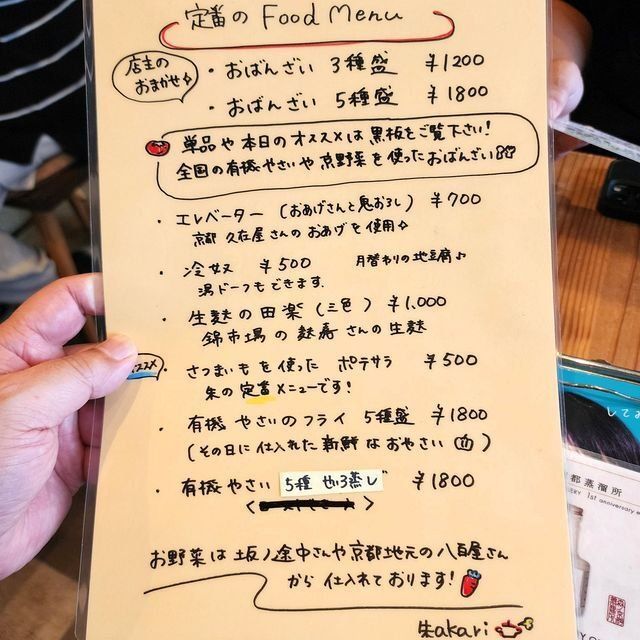 定番の Food Menu
店主の
おまかせ
・おばんざい 3種盛 ¥1200
・おばんざい 5種盛 ¥1800
単品や本日のオススメは黒板をご覧下さい!
全国の有機やさいや京野菜を使ったおばんざい
・エレベーター (おあげさんと鬼おろし) ¥700
京都 久在屋さんのおあげを使用
・冷奴 ¥500 月替わりの地豆腐♪
湯ドーフもできます.
・生麩の田楽 (三色) ¥1,000
錦市場の麩寿さんの生麩
オススメ
・さつまいもを使った ポテサラ ¥500
朱の定番メニューです!
・有機やさいのフライ 5種盛 ¥1800
(その日に仕入れた新鮮なおやさい)
・有機やさい 5種 せいろ蒸し ¥1800
お野菜は 坂ノ途中さんや京都地元の八百屋さん
から仕入れております!
朱akari
してお
都蒸溜所
ERY 1st anniversary e